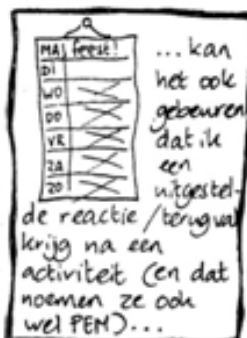 MA feest!
DI
WO
DO
VR
ZA
ZO
...kan
het ook
gebeuren
dat ik
een
uitgestel-
de reactie/terugval
krijg na een
activiteit (en dat
noemen ze ook
wel PEM)...